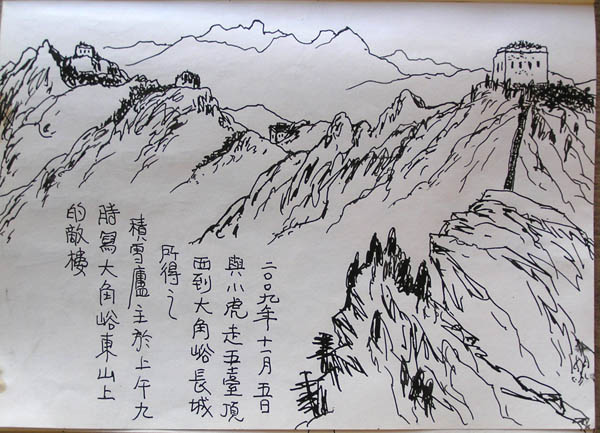 二〇〇九年十一月五日
與小虎走五臺頂
西到大角峪長城
所得之
積雪廬主於上午九
時寫大角峪東山上
的敵樓